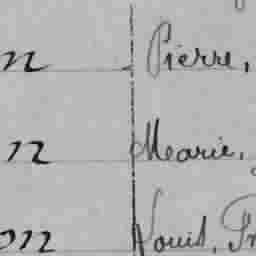 n Pierre,
n Marie,
on Louis, Pr